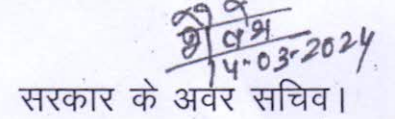 14-03-2024
सरकार के अवर सचिव।